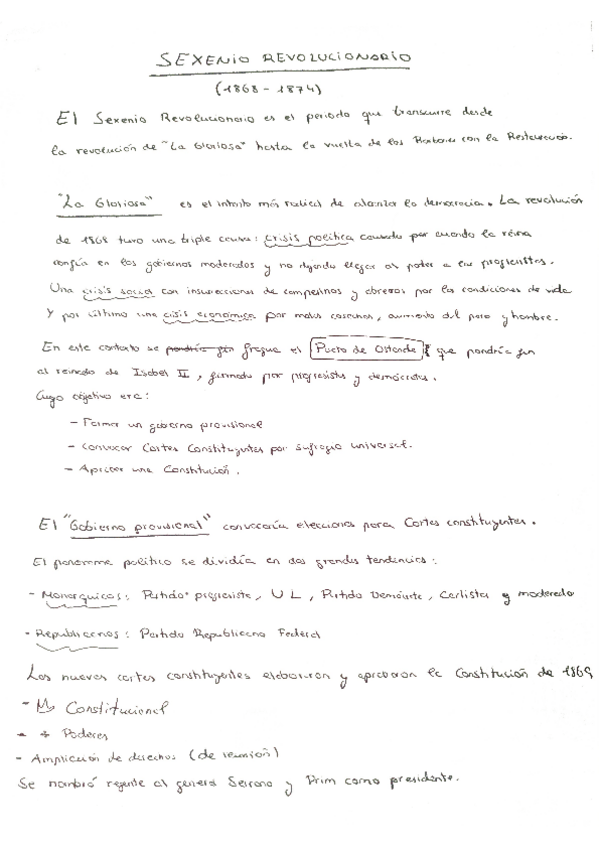 SEXENIO REVOLUCIONARIO
(1868 - 1874)
El Sexenio Revolucionario es el periodo que transcurre desde
la revolución de "La Gloriosa" hasta la vuelta de los Borbones con la Restauración.
"La Gloriosa" es el intento más radical de alcanzar la democracia. La revolución
de 1868 tuvo una triple causa: crisis política causada por cuando la reina
confía en los gobiernos moderados y no dejando llegar al poder a los progresistas.
Una crisis social con insurrecciones de campesinos y obreros por las condiciones de vida
Y por último una crisis económica por malas cosechas, aumento del paro y hambre.
En este contexto se pondría fin fragua el Pacto de Ostende que pondría fin
al reinado de Isabel II, firmado por progresistas y demócratas.
Cuyo objetivo era:
- Formar un gobierno provisional
- Convocar Cortes Constituyentes por sufragio universal.
- Aprobar una Constitución.
El "Gobierno provisional" convocaría elecciones para Cortes constituyentes.
El panorama político se dividía en dos grandes tendencias:
- Monarquicos: Partido progresista, UL, Partido Demócrata, Carlista y moderado
- Republicanos: Partido Republicano Federal
Las nuevas cortes constituyentes elaboraron y aprobaron la Constitución de 1869
- Constitucional
- + Poderes
- Ampliación de derechos (de reunión)
Se nombró regente al general Serrano y Prim como presidente.